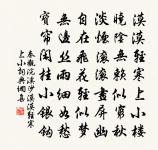 漠漠輕寒上小樓
曉陰無賴似窮秋
淡煙流水畫屏幽
自在飛花輕似夢
無邊絲雨細如愁
寶簾閑掛小銀鉤
秦觀浣溪沙漠漠輕寒
上小詞典網